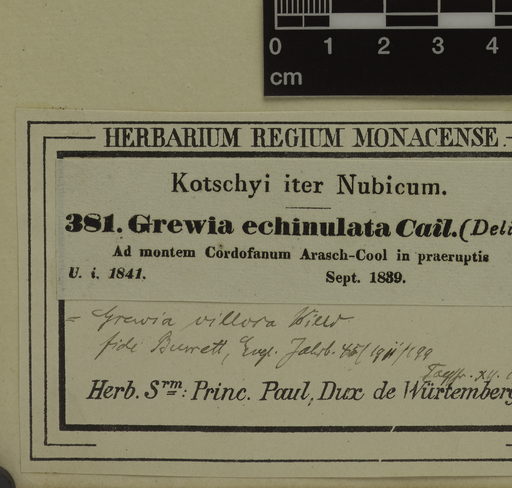 0 1 2 3 4
cm
HERBARIUM REGIUM MONACENSE.
Kotschyi iter Nubicum.
381. Grewia echinulata Cail. (Deli
Ad montem Cordofanum Arasch-Cool in praeruptis
U. i. 1841. Sept. 1839.
= Grewia villosa Willd
fide Burrett, Engl. Jahrb. 45 (1911) 199
Herb. Srm: Princ. Paul, Dux de Würtemberg